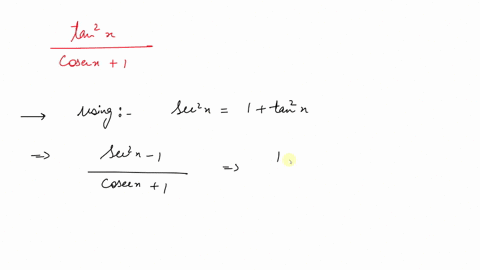 tan²x
cosecx + 1
→ using :- sec²x = 1 + tan²x
⇒ sec²x - 1 ⇒ 1,
cosecx + 1